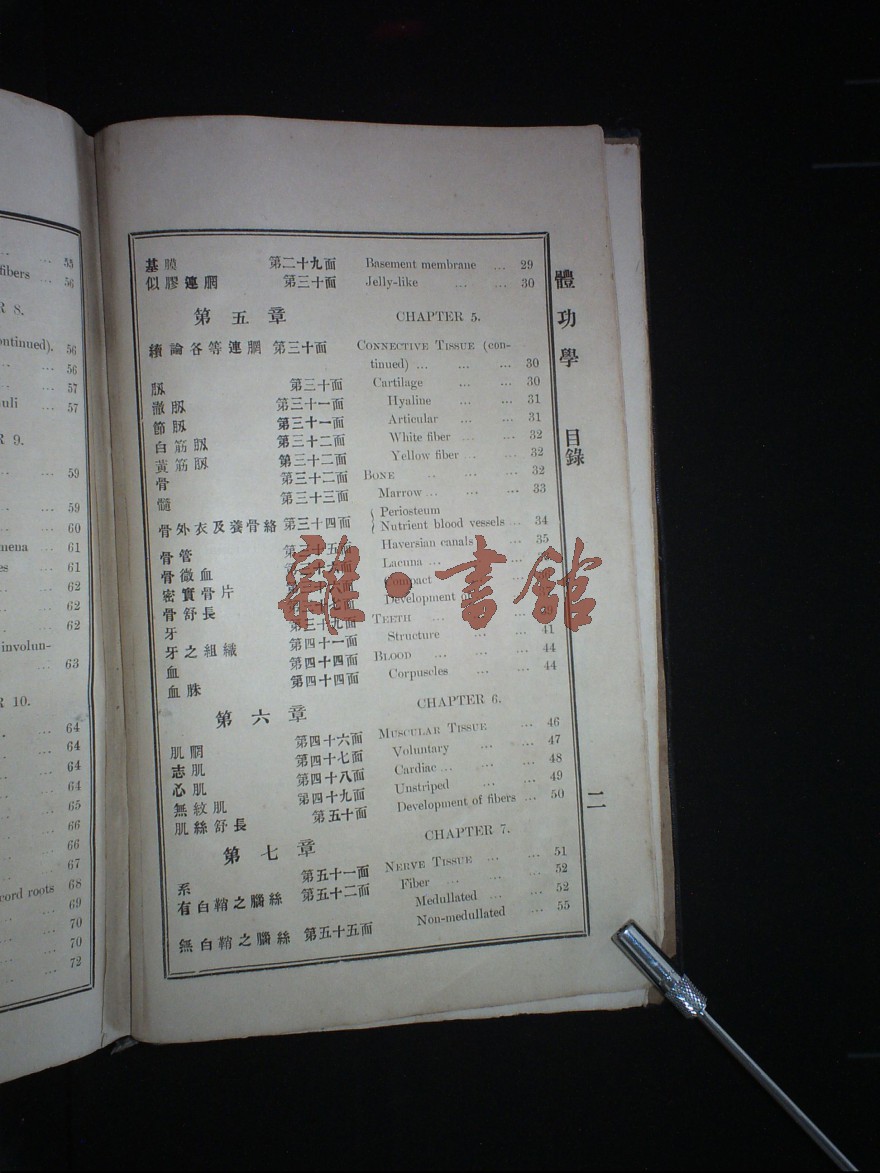 55
fibers ... ... 56
R 8.
ontinued). 56
... 56
... 57
uli ... 57
R 9.
... 59
... 59
... 60
mena ... 61
es ... 61
... 62
... 62
... 62
involun-
... 63
R 10.
... 64
... 64
... 64
... 64
... 65
... 66
... 66
... 67
cord roots 68
... 69
... 70
... 70
... 72
基膜 第二十九面 Basement membrane ... 29
似膠連膶 第三十面 Jelly-like ... ... 30
第五章 CHAPTER 5.
續論各等連膶 第三十面 CONNECTIVE TISSUE (con-
tinued) ... ... ... 30
第三十面 Cartilage ... ... 30
第三十一面 Hyaline ... ... 31
節 第三十一面 Articular ... ... 31
白筋 第三十二面 White fiber ... ... 32
黃筋 第三十二面 Yellow fiber ... ... 32
骨 第三十二面 BONE ... ... ... 32
髓 第三十三面 Marrow ... ... ... 33
骨外衣及養骨絡 第三十四面 { Periosteum
Nutrient blood vessels ... 34
骨管 第三十五面 Haversian canals ... 35
骨微血 Lacuna ...
密實骨片 第三十六面 Compact
骨舒長 第三十七面 Development of
牙 第三十九面 TEETH ... ... 39
牙之組織 第四十一面 Structure ... ... 41
血 第四十四面 BLOOD ... ... ... 44
血 第四十四面 Corpuscles ... ... 44
第六章 CHAPTER 6.
肌 第四十六面 MUSCULAR TISSUE ... 46
志肌 第四十七面 Voluntary ... ... 47
心肌 第四十八面 Cardiac ... ... ... 48
無紋肌 第四十九面 Unstriped ... ... 49
肌絲舒長 第五十面 Development of fibers ... 50
第七章 CHAPTER 7.
系 第五十一面 NERVE TISSUE ... ... 51
有白鞘之腦絲 第五十二面 Fiber ... ... ... 52
Medullated ... ... 52
無白鞘之腦絲 第五十五面 Non-medullated ... 55
體功學 目錄
二
雜·書館